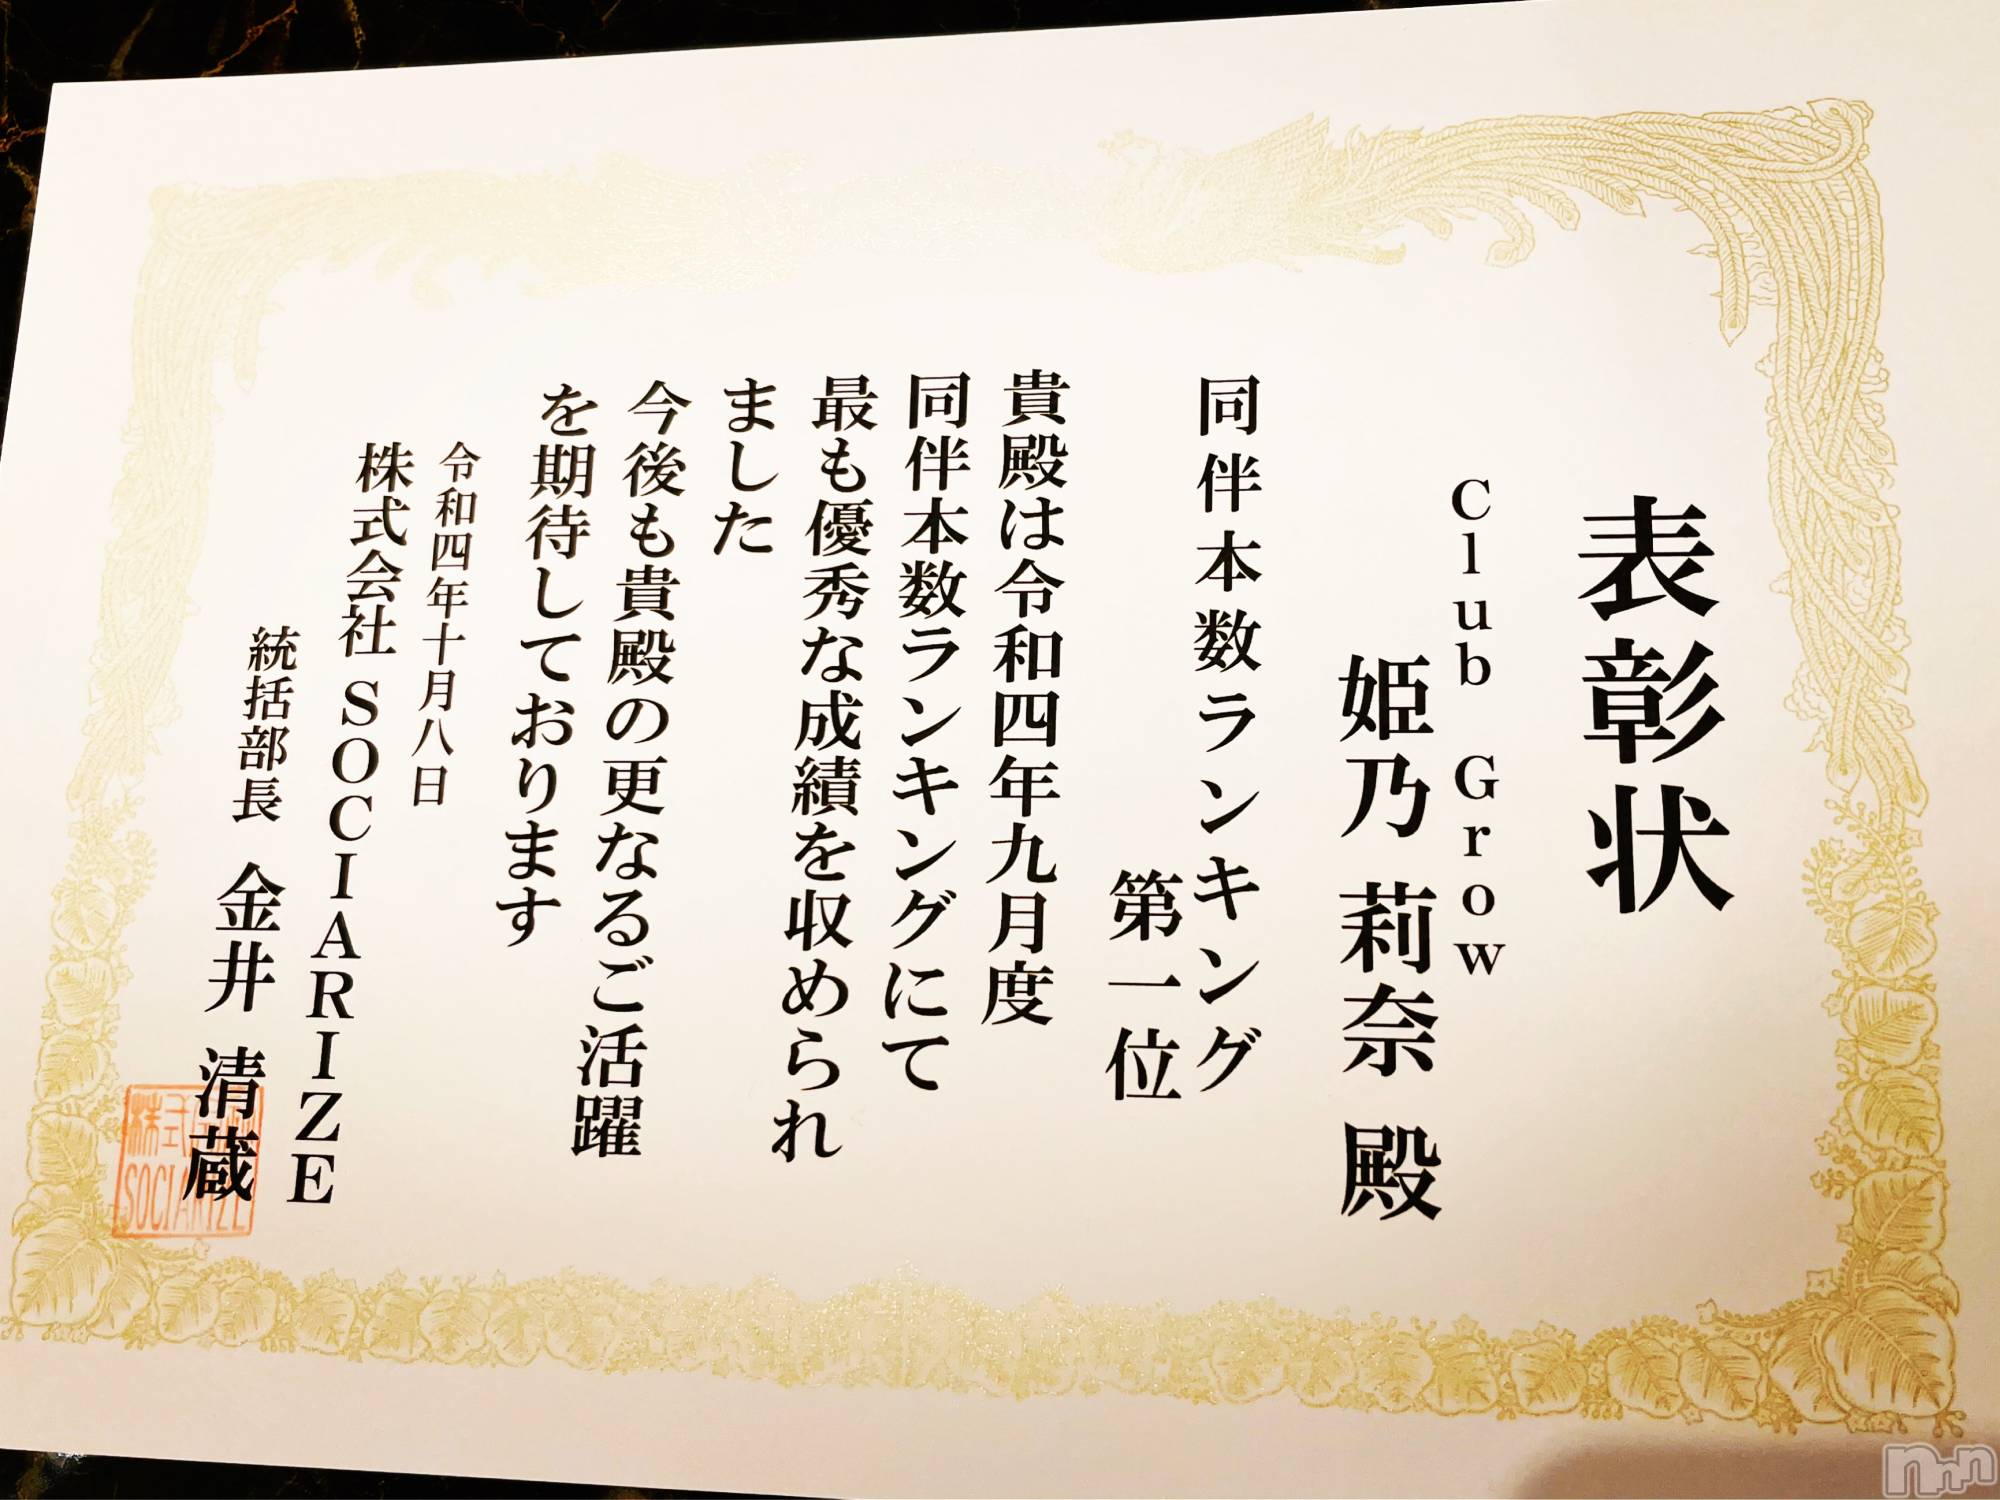 表彰状
Club Grow
姫乃 莉奈 殿
同伴本数ランキング
第一位
貴殿は令和四年九月度
同伴本数ランキングにて
最も優秀な成績を収められ
ました
今後も貴殿の更なるご活躍
を期待しております
令和四年十月八日
株式会社 SOCIARIZE
統括部長 金井 清蔵
SOCIARIZE
nnn